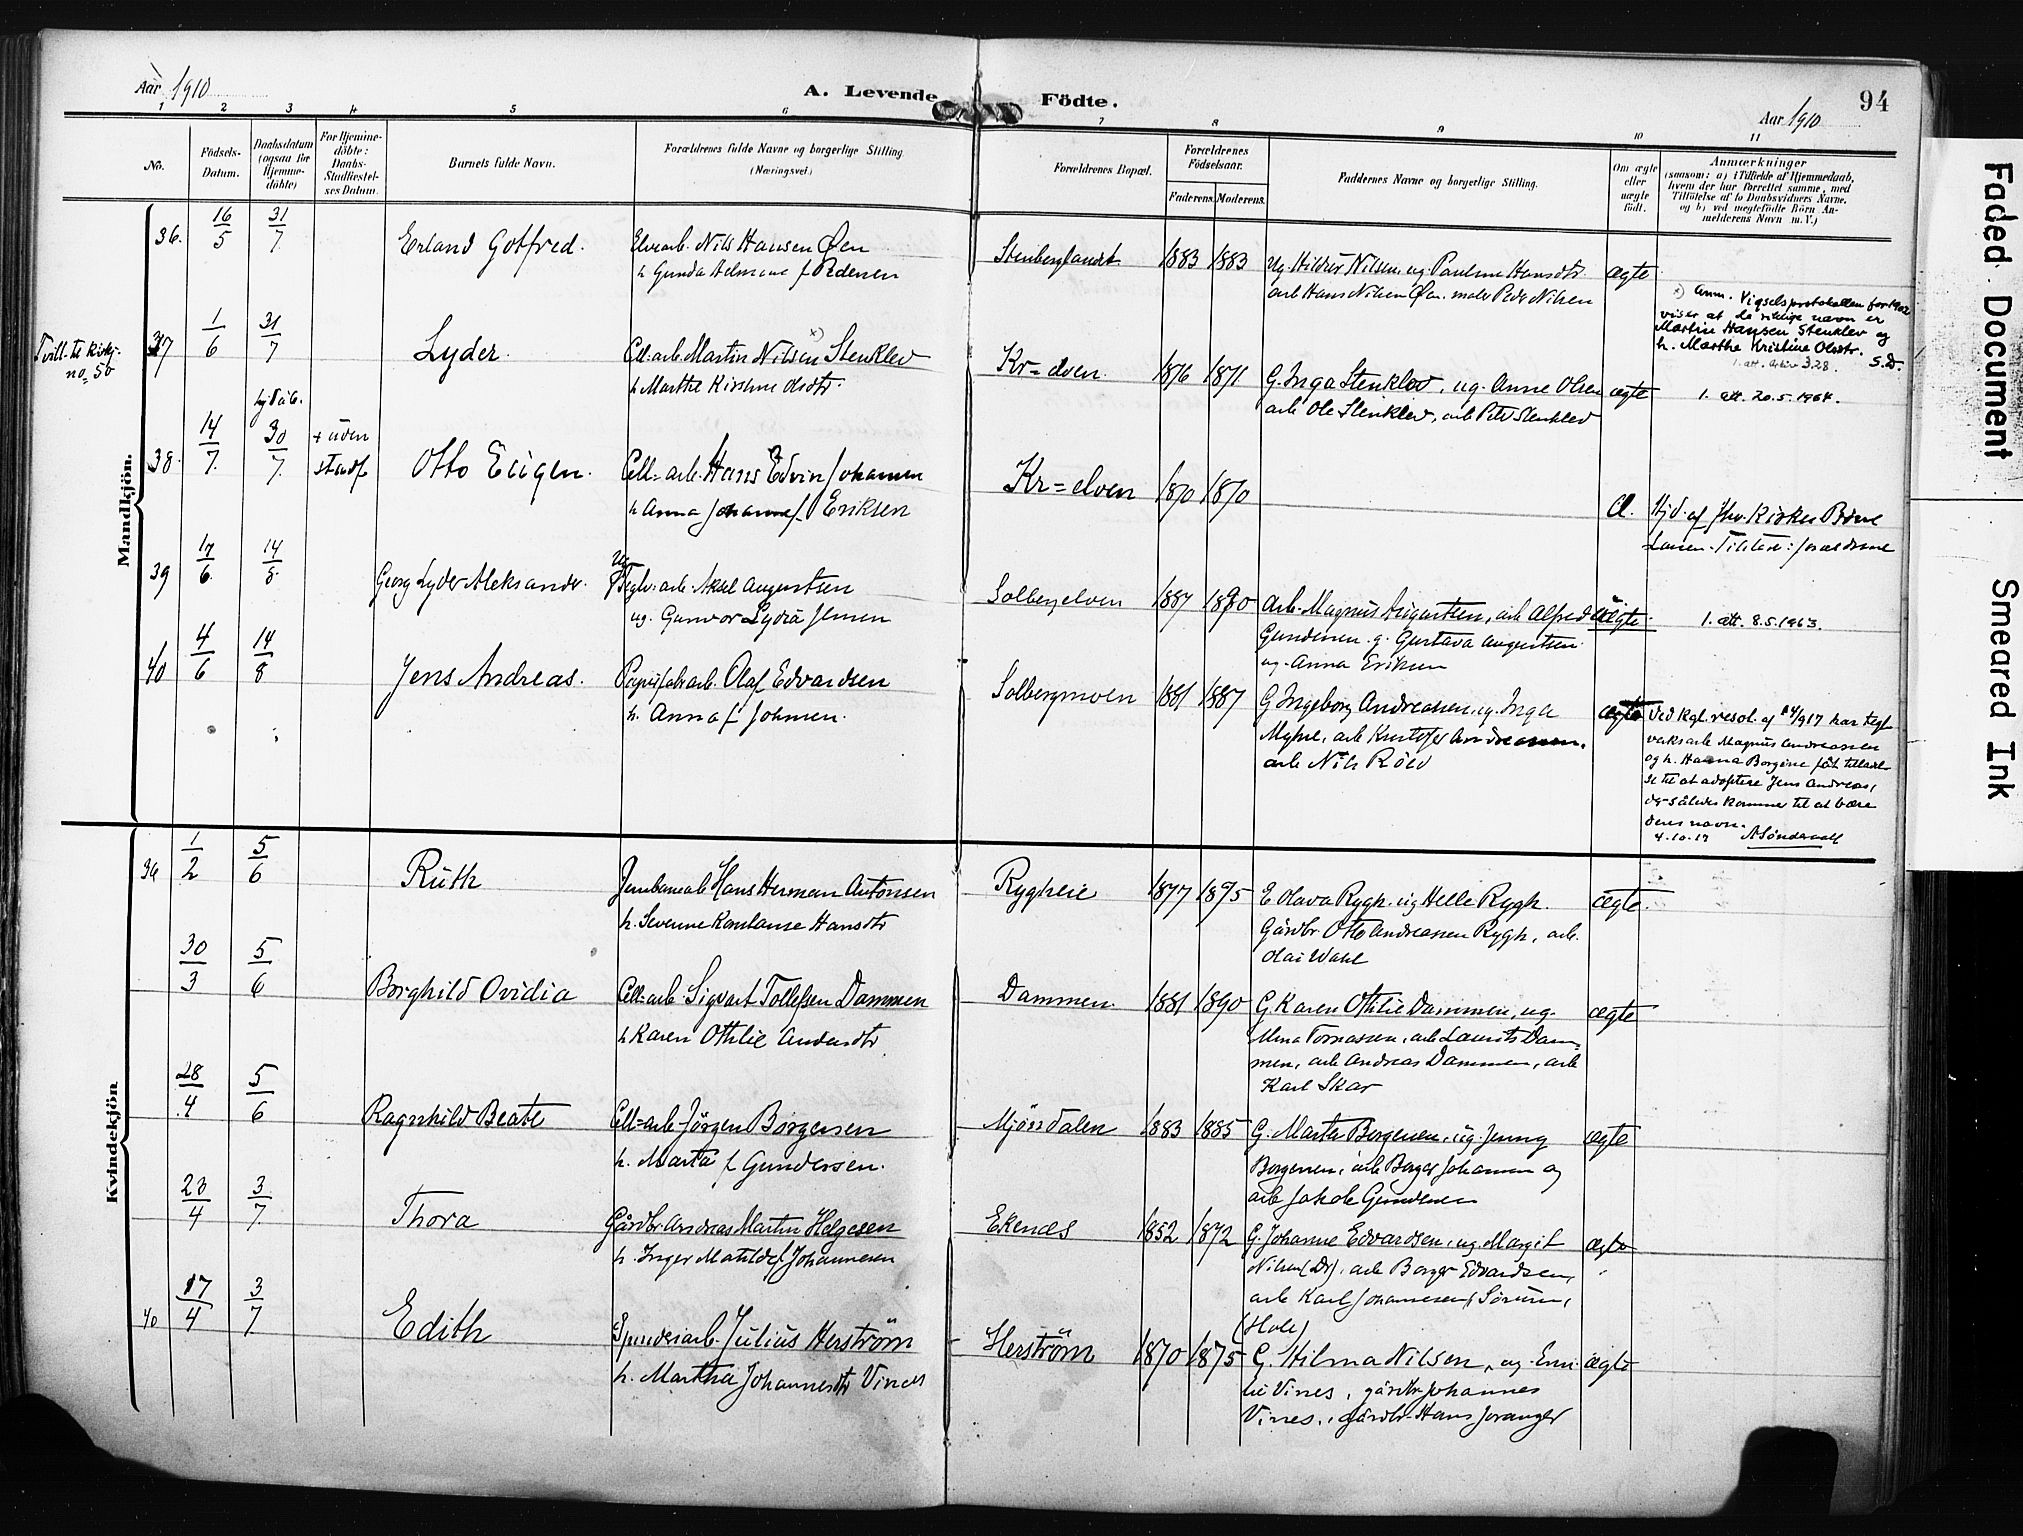 Aar 1910
A. Levende Födte.
94
Aar 1910
1 2 3 4 5 6 7 8 9 10 11
No.
Födsels-
Datum.
Daabsdatum
(ogsaa for
Hjemme-
döbte)
For Hjemme-
döbte:
Daabs-
Stadfæstel-
ses Datum.
Barnets fulde Navn.
Forældrenes fulde Navne og borgerlige Stilling
(Næringsvei.)
Forældrenes Bopæl.
Forældrenes
Födselsaar.
Faderens. Moderens.
Faddernes Navne og borgerlige Stilling.
Om ægte
eller
uægte
födt.
Anmærkninger
(saasom: a) i Tilfælde af Hjemmedaab,
hvem der har forrettet samme, med
Tilföielse af to Daabsvidners Navne.
og b) ved uægtefödte Börn An-
melderens Navn m. V.)
Mandkjön.
36. 16/5 31/7 Erland Gotfred. Elvearb. Nils Hansen Øen
h Gunda f Pedersen
Stenberglandet 1883 1883 Ug Hildur Nilsen, ug Pauline Hansdtr.
arb Hans Nilsen Øen. maler Peder Nilsen
ægte
x) Anm. Vigselsprotokollen for 1902
viser at de riktige navn er
Martin Hansen Stenklev og
h. Marthe Kristine Olsdtr. S.D.
1. att. 3.28.
Tvill. til
no= 50
37 1/6 31/7 Lyder. Cell. arb. Martin Nilsen x) Stenklev
h Marthe Kirstine Olsdtr.
Kr=elven. 1876 1871 G. Inga Stenklev, ug. Anne Olsen
arb Ole Stenklev, arb Peter Stenklev
ægte
1. att. 20.5.1964.
38. 14/7. 30/7. + uden
stadf Otto Eugen. Cell=arb. Hans Edvin Johansen
h Anna Johanne f. Eriksen
Kr=elven 1870 1870
Æ. Hjd. af
Larsen. : forældrene
39 17/6. 14/8. Georg Lyder Aleksander. Ug
Teglv. arb. Aksel Augustsen
ug. Gunvor Lydia Jensen
Solbergelven 1887 1890 Arb. Magnus Augustsen, arb Alfred
Gundersen. g. Gustava Augustsen
ug. Anna Eriksen
uægte.
1. att. 8.5.1963.
40 4/6 14/8 Jens Andreas. Papirfabr. arb. Olaf Edvardsen
h. Anna f. Johnsen.
Solbergmoen 1881 1887 G Ingeborg Andreasen, ug. Inga
Myhre, arb Kristofer Andreasen.
arb Nils Röed
ægte
Ved kgl. resol. af 14/9 17 har tegl-
verksarb Magnus Andreassen
og h. Hanna Borgine fåt tilladel-
se til at adoptere Jens Andreas,
der således kommer til at bære
deres navn.
4.10.17
Kvindekjön
36 1/2 5/6 Ruth Jernbanearb Hans Herman Antonsen
h. Severine Konstanse Hansdtr
Rygheie 1877 1875 E Olava Rygh. ug Helle Rygh.
Gårdbr. Otto Andreasen Rygh, arb.
Olai Wahl
ægte.
30/3 5/6 Borghild Ovidia Cell=arb. Sigvart Tollefsen Dammen
h Karen Othilie Andersdtr
Dammen. 1881 1890 G. Karen Othilie Dammen, ug.
arb Laurits Dam-
men, arb Andreas Dammen, arb
Karl Skar
ægte
28/4 5/6 Ragnhild Beate Cell=arb. Jörgen Borgersen
h. Marta f Gundersen.
Mjöndalen 1883 1885 G. Marta Borgersen, ug. Jenny
Borgersen, arb Borger Johansen og
arb Jakob Gundersen
ægte
23/4 3/7. Thora Gårdbr. Andreas Martin Helgesen
h. Inger Matilde f Johannesen
Ekenes 1852 1872 G. Johanne Edvardsen, ug. Margit
Nilsen (Dr), arb Borger Edvardsen,
arb Karl Johannesen, Sörum,
(Hole)
ægte
40 17/4 3/7. Edith Spinderiarb. Julius Herström
h. Martha Johannesdtr Vines
Herström 1870 1875 G. Hilma Nilsen, ug. Emi-
lie Vines, gårdbr. Johannes
Vines, gårdbr. Hans Joranger
ægte
Faded Document
Smeared Ink